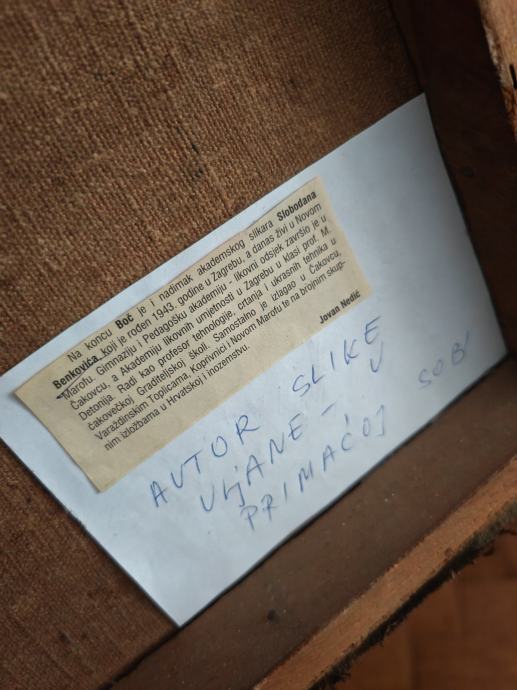 Na koncu Boč je i nadimak akademskog slikara Slobodana
Benkovića koji je rođen 1943. godine u Zagrebu, a danas živi u Novom
Marofu. Gimnaziju i Pedagošku akademiju - likovni odsjek završio je u
Čakovcu, a Akademiju likovnih umjetnosti u Zagrebu u klasi prof. M.
Detonija. Radi kao profesor tehnologije, crtanja i ukrasnih tehnika u
čakovečkoj Graditeljskoj školi. Samostalno je izlagao u Čakovcu,
Varaždinskim Toplicama, Koprivnici i Novom Marofu te na brojnim skup-
nim izložbama u Hrvatskoj i inozemstvu.
Jovan Nedić
AUTOR SLIKE
ULJANE - U
PRIMAĆOJ SOBI